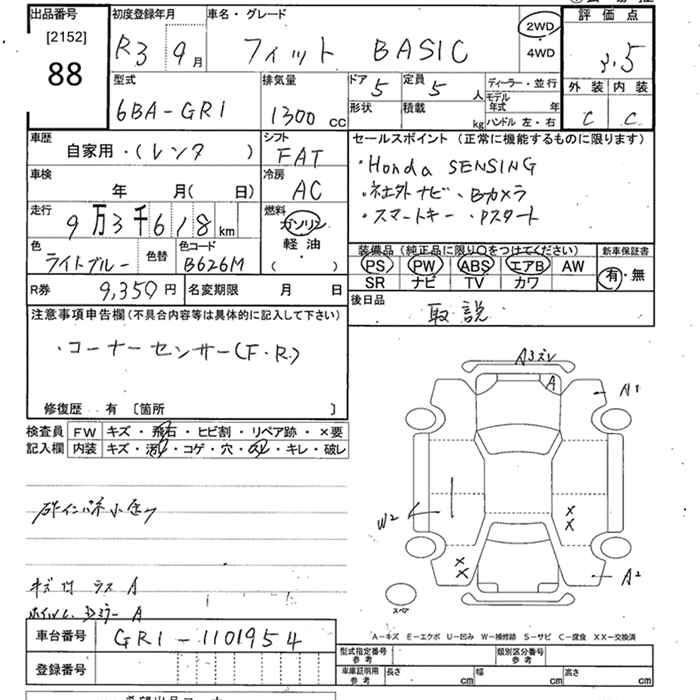 出品番号 初度登録年月 車名・グレード 評価点
[2152]
88
R3 9月 フィット BASIC 2WD 3.5
4WD
型式 排気量 ドア 定員 ディーラー・並行 外装 内装
6BA-GR1 1300 CC 5 5 人 モデル年式 年
形状 積載 kg ハンドル 左・右 C C
車歴 シフト セールスポイント (正常に機能するものに限ります)
自家用・(レンタ ) FAT
・Honda SENSING
車検 冷房
年 月( 日) AC
・社外ナビ、Bカメラ
走行 燃料
9万3千618km ガソリン
・スマートキー、Pスタート
軽油
( )
色 色替 色コード
ライトブルー B626M
装備品 (純正品に限り○をつけてください) 新車保証書
PS PW ABS エアB AW 有・無
SR ナビ TV カワ
R券 9,350円 名変期限 月 日
後日品
取説
注意事項申告欄 (不具合内容等は具体的に記入して下さい)
・コーナーセンサー(F・R)
修復歴 有 〔箇所 〕
検査員 FW キズ・飛石・ヒビ割・リペア跡・×要
記入欄 内装 キズ・汚れ・コゲ・穴・スレ・キレ・破レ
A3ズレ
A
A1
W2
×
×
×
×
A2
スペア
A
A
A−キズ E−エクボ U−凹み W−補修跡 S−サビ C−腐食 XX−交換済
車台番号 GR1-1101954
登録番号
型式指定番号 参考 類別区分番号 参考
車庫証明用 参考 長さ cm 幅 cm 高さ cm